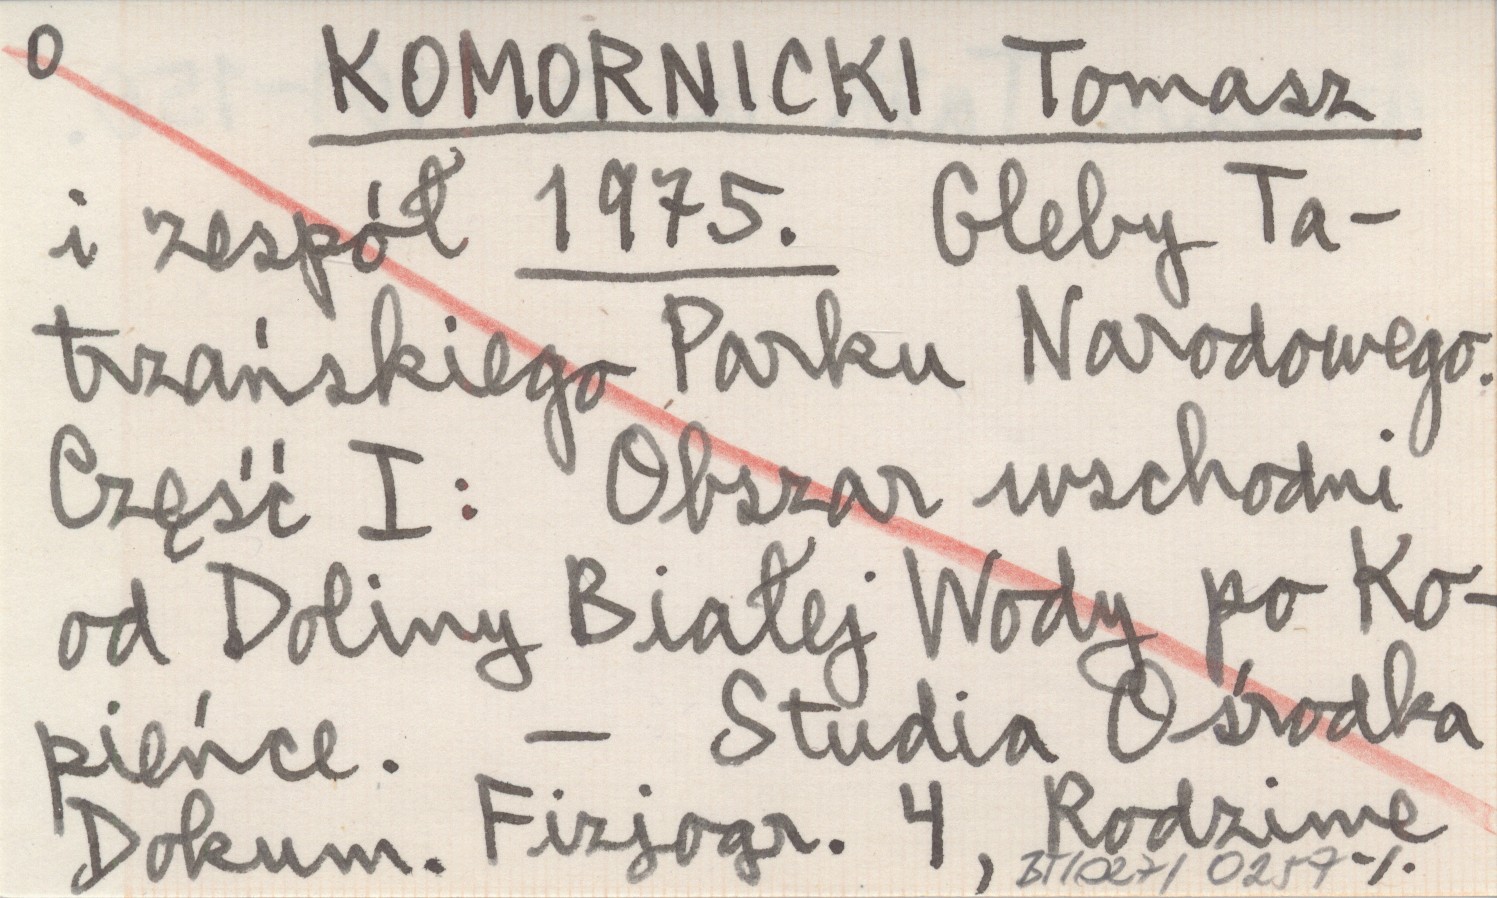 O KOMORNICKI Tomasz
i zespół 1975. Gleby Ta-
trzańskiego Parku Narodowego.
Część I: Obszar wschodni
od Doliny Białej Wody po Ko-
pieńce. — Studia Ośrodka
Dokum. Fizjogr. 4, Rodzime
BT/027/ 0257 -/.